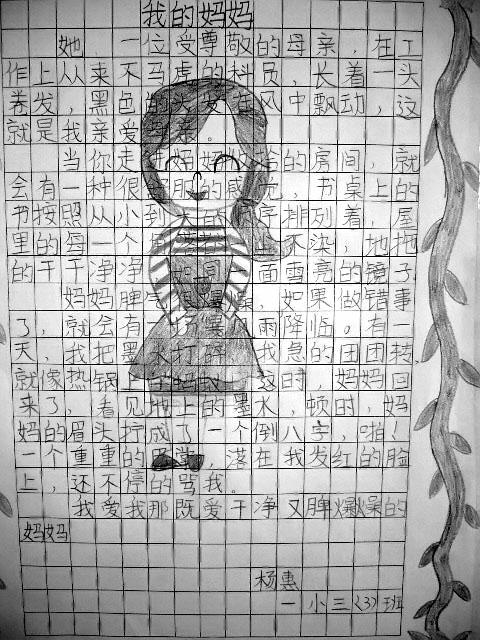 我的妈妈
她,一位受尊敬的母亲,在工
作上从来不马虎的科员,长着一头
卷发,黑色的头发在风中飘动,这
就是我亲爱母亲。
当你走进妈妈收拾的房间,就
会有一种很舒服的感觉,书桌上的
书按照从小到大的顺序排列着,屋
里的每一个角落一尘不染,地拖
的干干净净,如同一面雪亮的镜子.
妈妈脾气很爆燥,如果做错事
了,就会有一场暴风雨降临。有一
天,我把墨水打碎,我急的团团转,
就像热锅上的蚂蚁,这时,妈妈回
来了,看见地上的墨水,顿时,妈
妈的眉头拧成了一个倒八字,啪!
一个重重的巴掌,落在我发红的脸
上,还不停的骂我。
我爱我那既爱干净又脾爆燥的
妈妈
杨惠
一小三〈3〉班